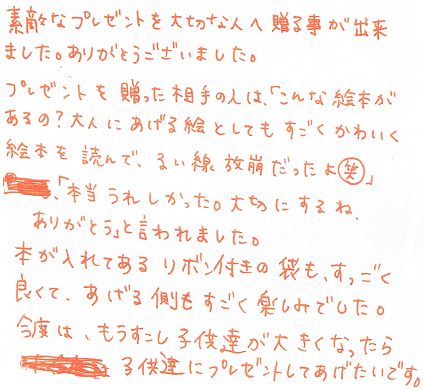 素敵なプレゼントを大切な人へ贈る事が出来
ました。ありがとうございました。
プレゼントを贈った相手の人は、「こんな絵本が
あるの？大人にあげる絵としてもすごくかわいく
絵本を読んで、るい線放崩だったよ笑」
、「本当うれしかった。大切にするね、
ありがとう」と言われました。
本が入れてあるリボン付きの袋も、すっごく
良くて、あげる側もすごく楽しみでした。
今度は、もうすこし子供達が大きくなったら
子供達にプレゼントしてあげたいです。